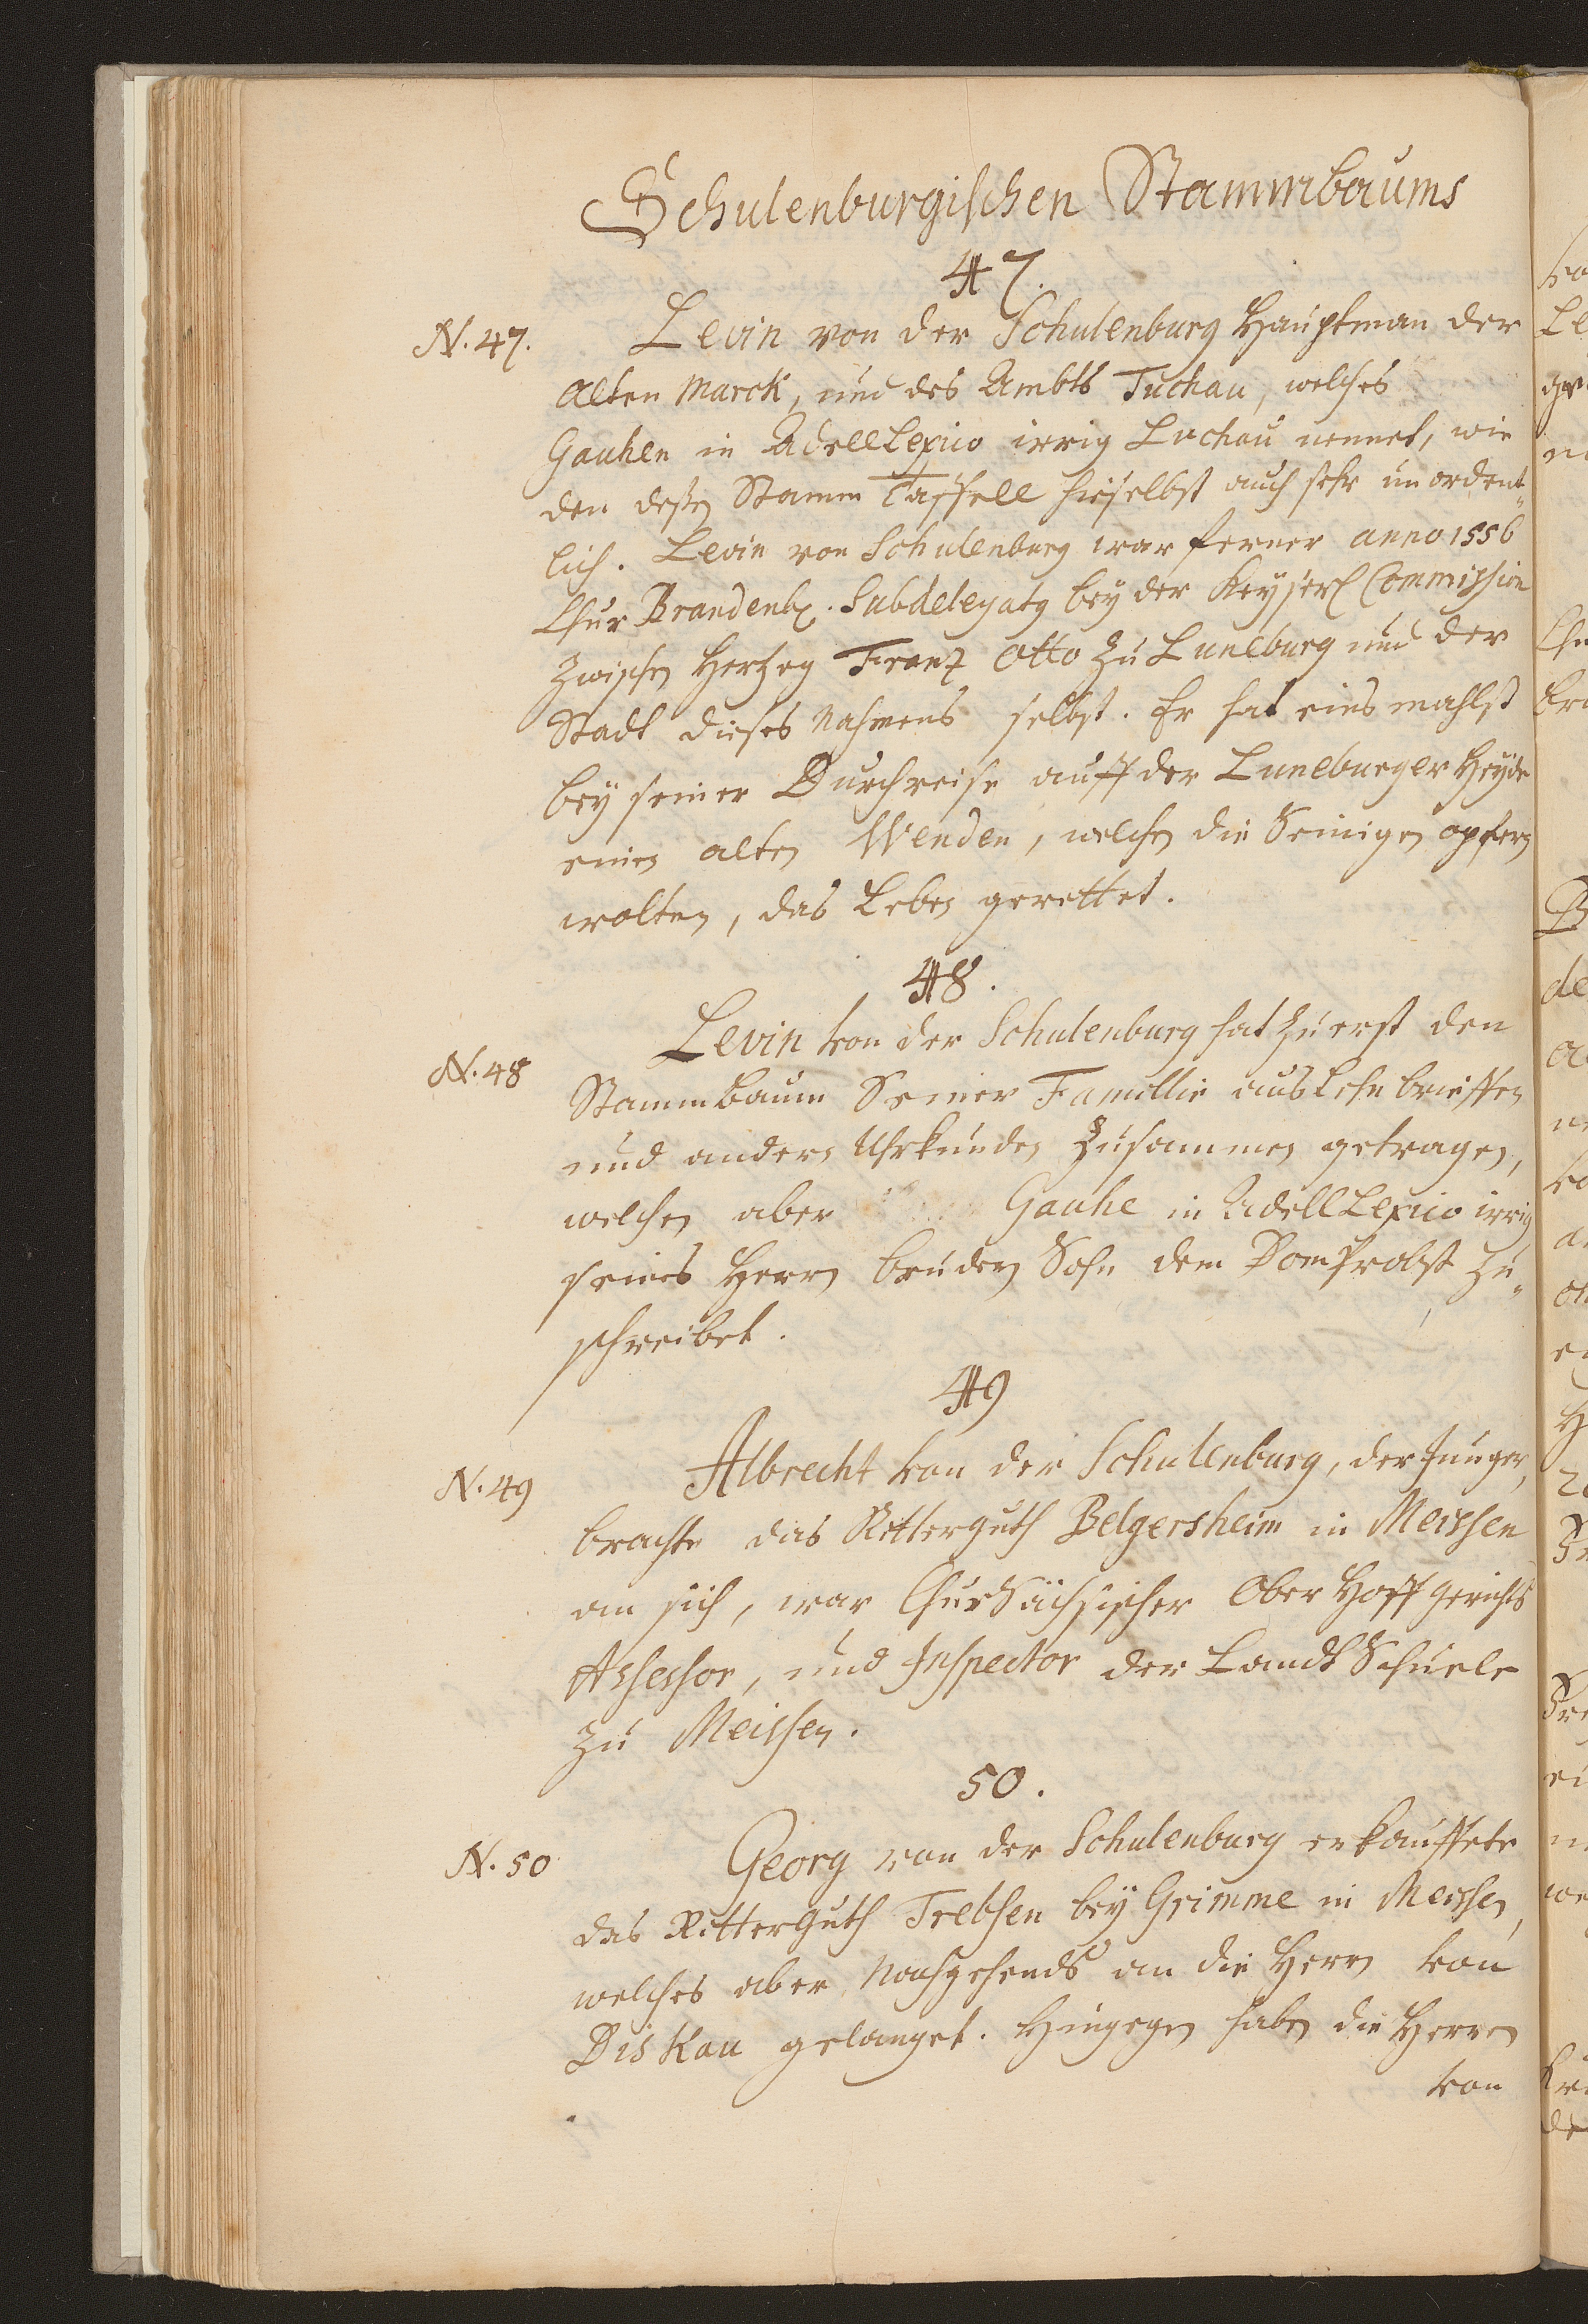 Schulenburgischen Stammbaums
47.
N. 47. Levin von der Schulenburg Hauptman der
Alten Marck, und des Ambts Tuchau, welches
Gauhen in Adell Lexico irrig Luchau nennet, wie
den deßen Stamm Taffell hieselbst auch sehr unordent„
lich. Levin von Schulenburg war ferner anno 1556
Chur Brandenb. Subdelegatg bey der Keyserl Commission
zwischen Hertzog Frantz Otto zu Luneburg und der
Stadt dieses Nahmens selbst. Er hat eins mahlst
bey seiner Durchreise auff der Luneburger Heyde
einen alten Wenden, welchen die Seinigen opfern
wolten, das Leben gerettet.
48.
N. 48 Levin von der Schulenburg hat zu erst den
Stammbaum Seiner Famillie aus Lehnbrieffen
und andern Uhrkunden zusammen getragen,
welchen aber Gauhe in Adell Lexico irrig
seines Herrn Brudern Sohn dem Dom Probst zu„
schreibet.
49
N. 49 Albrecht von der Schulenburg, der Junger,
brachte das Ritterguth Belgersheim in Meissen
an sich, war ChurSächsischer Ober Hoff gerichts
Assessor, und Inspector der Landt Schuele
zu Meissen.
50.
N. 50 Georg von der Schulenburg erkauffete
das Ritterguth Trebsen bey Grimme in Meissen,
welches aber Nachgehends an die Herrn von
Diskau gelanget. Hingegen haben die Herren
von